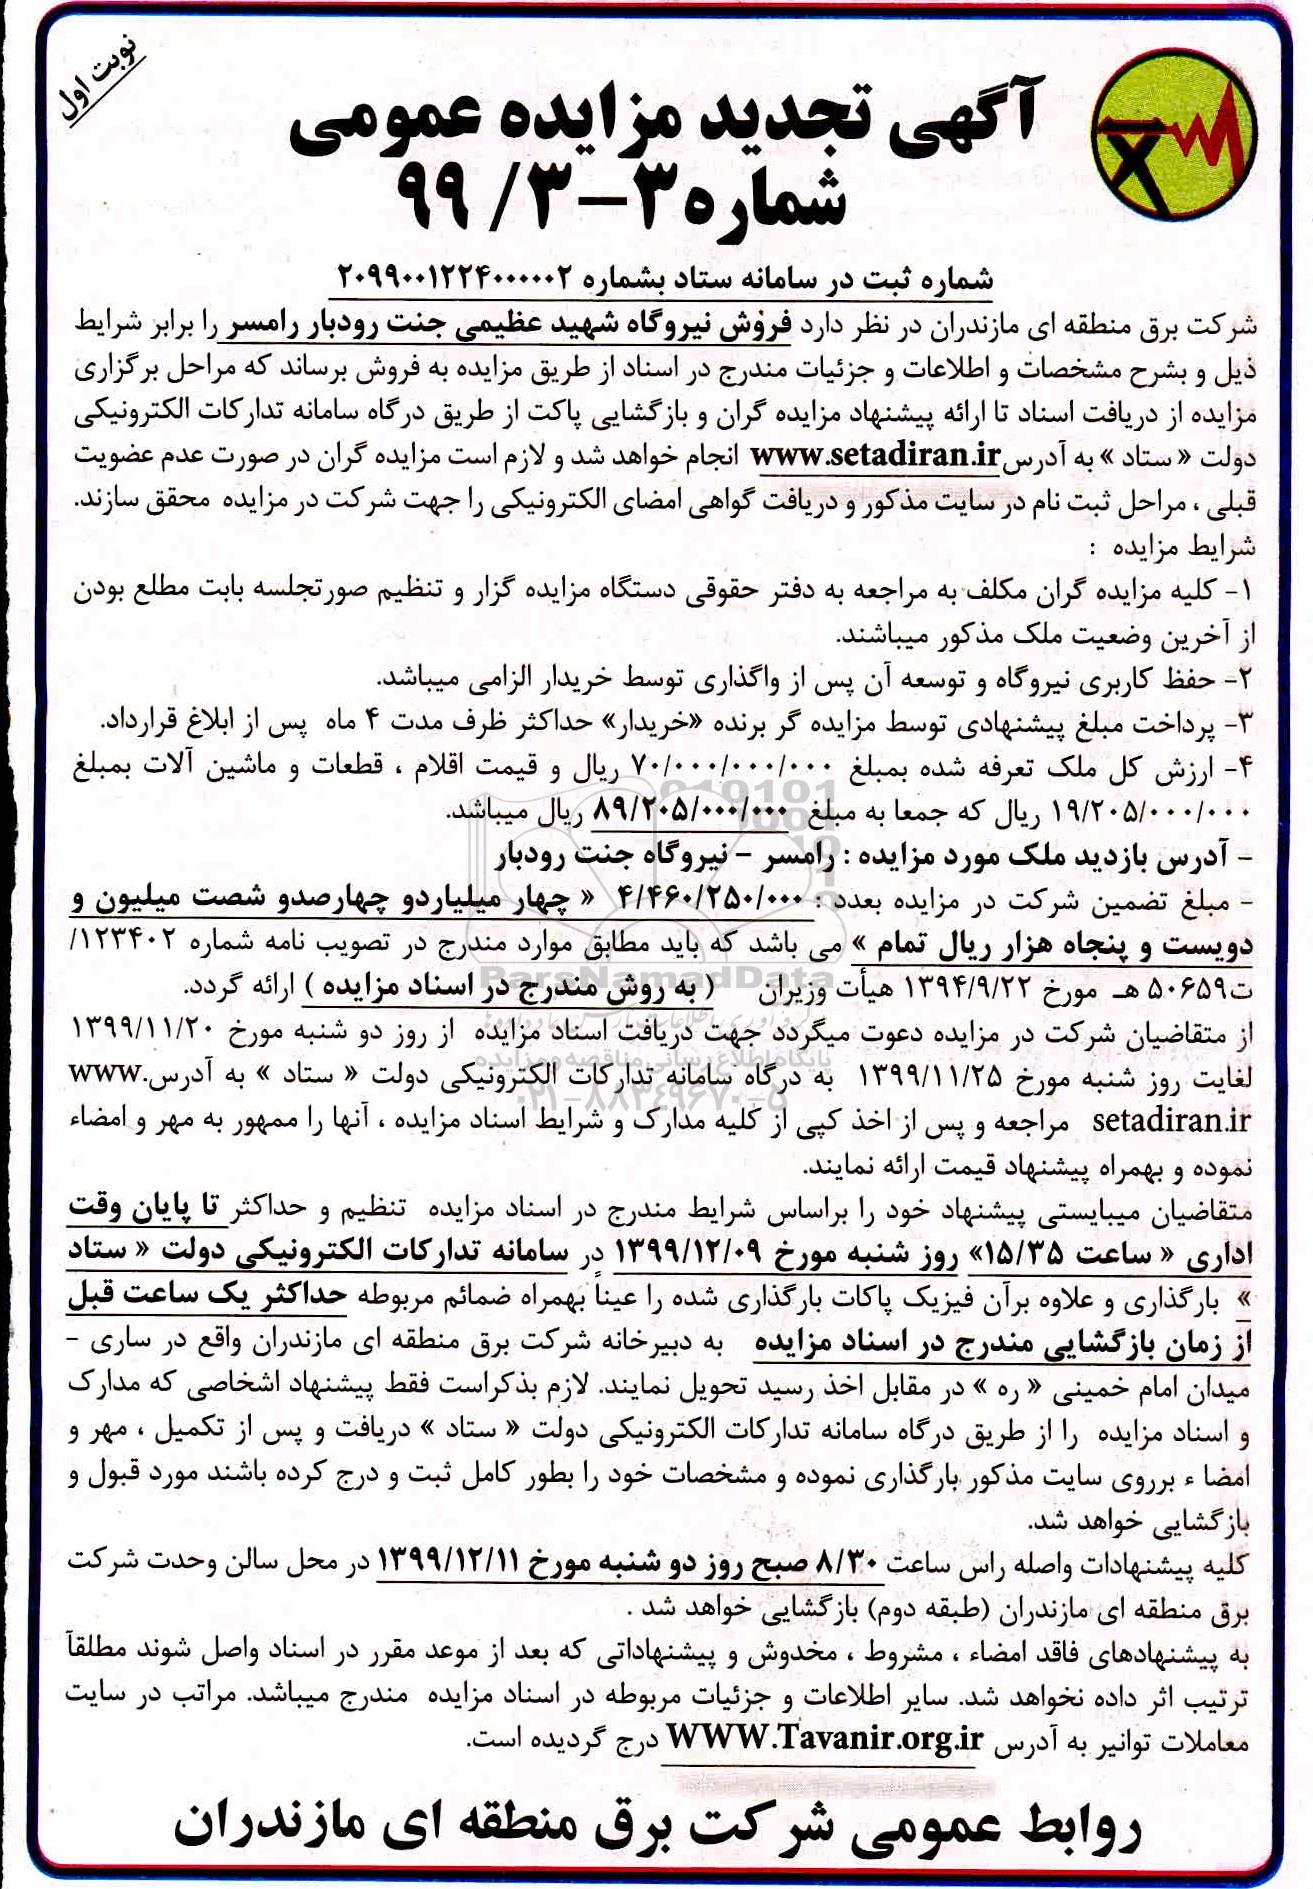 نوبت اول
آگهی تجدید مزایده عمومی
شماره ۳-۳/ ۹۹
شماره ثبت در سامانه ستاد بشماره ۲۰۹۹۰۰۱۲۲۴۰۰۰۰۰۲
شرکت برق منطقه ای مازندران در نظر دارد فروش نیروگاه شهید عظیمی جنت رودبار رامسر را برابر شرایط
ذیل و بشرح مشخصات و اطلاعات و جزئیات مندرج در اسناد از طریق مزایده به فروش برساند که مراحل برگزاری
مزایده از دریافت اسناد تا ارائه پیشنهاد مزایده گران و بازگشایی پاکت از طریق درگاه سامانه تدارکات الکترونیکی
دولت « ستاد » به آدرس www.setadiran.ir انجام خواهد شد و لازم است مزایده گران در صورت عدم عضویت
قبلی ، مراحل ثبت نام در سایت مذکور و دریافت گواهی امضای الکترونیکی را جهت شرکت در مزایده محقق سازند.
شرایط مزایده :
۱- کلیه مزایده گران مکلف به مراجعه به دفتر حقوقی دستگاه مزایده گزار و تنظیم صورتجلسه بابت مطلع بودن
از آخرین وضعیت ملک مذکور میباشند.
۲- حفظ کاربری نیروگاه و توسعه آن پس از واگذاری توسط خریدار الزامی میباشد.
۳- پرداخت مبلغ پیشنهادی توسط مزایده گر برنده «خریدار» حداکثر ظرف مدت ۴ ماه پس از ابلاغ قرارداد.
۴- ارزش کل ملک تعرفه شده بمبلغ ۷۰/۰۰۰/۰۰۰/۰۰۰ ریال و قیمت اقلام ، قطعات و ماشین آلات بمبلغ
۱۹/۲۰۵/۰۰۰/۰۰۰ ریال که جمعا به مبلغ ۸۹/۲۰۵/۰۰۰/۰۰۰ ریال میباشد.
- آدرس بازدید ملک مورد مزایده : رامسر - نیروگاه جنت رودبار
- مبلغ تضمین شرکت در مزایده بعدد : ۴/۴۶۰/۲۵۰/۰۰۰ « چهار میلیاردو چهارصدو شصت میلیون و
دویست و پنجاه هزار ریال تمام » می باشد که باید مطابق موارد مندرج در تصویب نامه شماره ۱۲۳۴۰۲/
ت۵۰۶۵۹ هـ مورخ ۱۳۹۴/۹/۲۲ هیأت وزیران ( به روش مندرج در اسناد مزایده ) ارائه گردد.
از متقاضیان شرکت در مزایده دعوت میگردد جهت دریافت اسناد مزایده از روز دو شنبه مورخ ۱۳۹۹/۱۱/۲۰
لغایت روز شنبه مورخ ۱۳۹۹/۱۱/۲۵ به درگاه سامانه تدارکات الکترونیکی دولت « ستاد » به آدرس www.
setadiran.ir مراجعه و پس از اخذ کپی از کلیه مدارک و شرایط اسناد مزایده ، آنها را ممهور به مهر و امضاء
نموده و بهمراه پیشنهاد قیمت ارائه نمایند.
متقاضیان میبایستی پیشنهاد خود را براساس شرایط مندرج در اسناد مزایده تنظیم و حداکثر تا پایان وقت
اداری « ساعت ۱۵/۳۵» روز شنبه مورخ ۱۳۹۹/۱۲/۰۹ در سامانه تدارکات الکترونیکی دولت « ستاد
» بارگذاری و علاوه برآن فیزیک پاکات بارگذاری شده را عیناً بهمراه ضمائم مربوطه حداکثر یک ساعت قبل
از زمان بازگشایی مندرج در اسناد مزایده به دبیرخانه شرکت برق منطقه ای مازندران واقع در ساری -
میدان امام خمینی « ره » در مقابل اخذ رسید تحویل نمایند. لازم بذکراست فقط پیشنهاد اشخاصی که مدارک
و اسناد مزایده را از طریق درگاه سامانه تدارکات الکترونیکی دولت « ستاد » دریافت و پس از تکمیل ، مهر و
امضا ء برروی سایت مذکور بارگذاری نموده و مشخصات خود را بطور کامل ثبت و درج کرده باشند مورد قبول و
بازگشایی خواهد شد.
کلیه پیشنهادات واصله راس ساعت ۸/۳۰ صبح روز دو شنبه مورخ ۱۳۹۹/۱۲/۱۱ در محل سالن وحدت شرکت
برق منطقه ای مازندران (طبقه دوم) بازگشایی خواهد شد .
به پیشنهادهای فاقد امضاء ، مشروط ، مخدوش و پیشنهاداتی که بعد از موعد مقرر در اسناد واصل شوند مطلقاً
ترتیب اثر داده نخواهد شد. سایر اطلاعات و جزئیات مربوطه در اسناد مزایده مندرج میباشد. مراتب در سایت
معاملات توانیر به آدرس WWW.Tavanir.org.ir درج گردیده است.
روابط عمومی شرکت برق منطقه ای مازندران
ParsNamadData
پایگاه اطلاع رسانی مناقصه و مزایده
۰۲۱-۸۸۳۴۹۶۷۰-۵